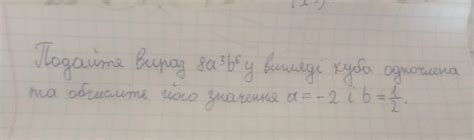 Подайте вираз 8a³b⁶ у вигляді куба одночлена
та обчисліть його значення a = -2 і b = 1/2.